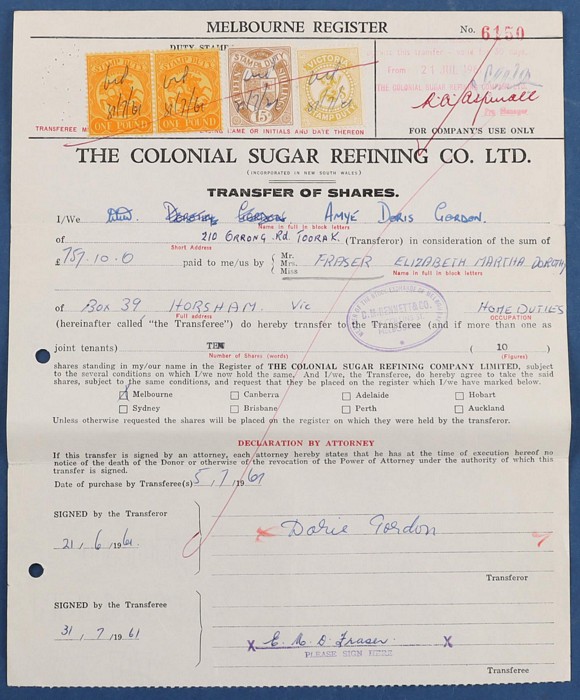 MELBOURNE REGISTER
No. 6150
DUTY STAMP
STAMP DUTY STAMP DUTY STAMP DUTY VICTORIA
ONE POUND ONE POUND 15 STAMP DUTY
From
THE COLONIAL SUGAR REFINING COMPANY LTD.
TRANSFEREE NAME OR INITIALS AND DATE THEREON
FOR COMPANY'S USE ONLY
THE COLONIAL SUGAR REFINING CO. LTD.
(INCORPORATED IN NEW SOUTH WALES)
TRANSFER OF SHARES.
I/We Dorothy Gordon Amye Doris Gordon.
Name in full in block letters
of 210 Orrong Rd Toorak. (Transferor) in consideration of the sum of
Short Address
£757.10.0 paid to me/us by { Mr. Mrs. Miss FRASER ELIZABETH MARTHA DOROTHY
Name in full in block letters
of BOX 39 HORSHAM. Vic HOME DUTIES
Full address OCCUPATION
(hereinafter called "the Transferee") do hereby transfer to the Transferee (and if more than one as
joint tenants) TEN ( 10 )
Number of Shares (words) (Figures)
shares standing in my/our name in the Register of THE COLONIAL SUGAR REFINING COMPANY LIMITED, subject
to the several conditions on which I/we now hold the same. And I/we, the Transferee, do hereby agree to take the said
shares, subject to the same conditions, and request that they be placed on the register which I/we have marked below.
Melbourne Canberra Adelaide Hobart
Sydney Brisbane Perth Auckland
Unless otherwise requested the shares will be placed on the register on which they were held by the transferor.
DECLARATION BY ATTORNEY
If this transfer is signed by an attorney, each attorney hereby states that he has at the time of execution hereof no
notice of the death of the Donor or otherwise of the revocation of the Power of Attorney under the authority of which this
transfer is signed.
Date of purchase by Transferee(s) 5/7/1961
SIGNED by the Transferor
Doris Gordon
21/6/1961.
Transferor
SIGNED by the Transferee
31/7/1961
x E. M. D. Fraser. x
PLEASE SIGN HERE
Transferee